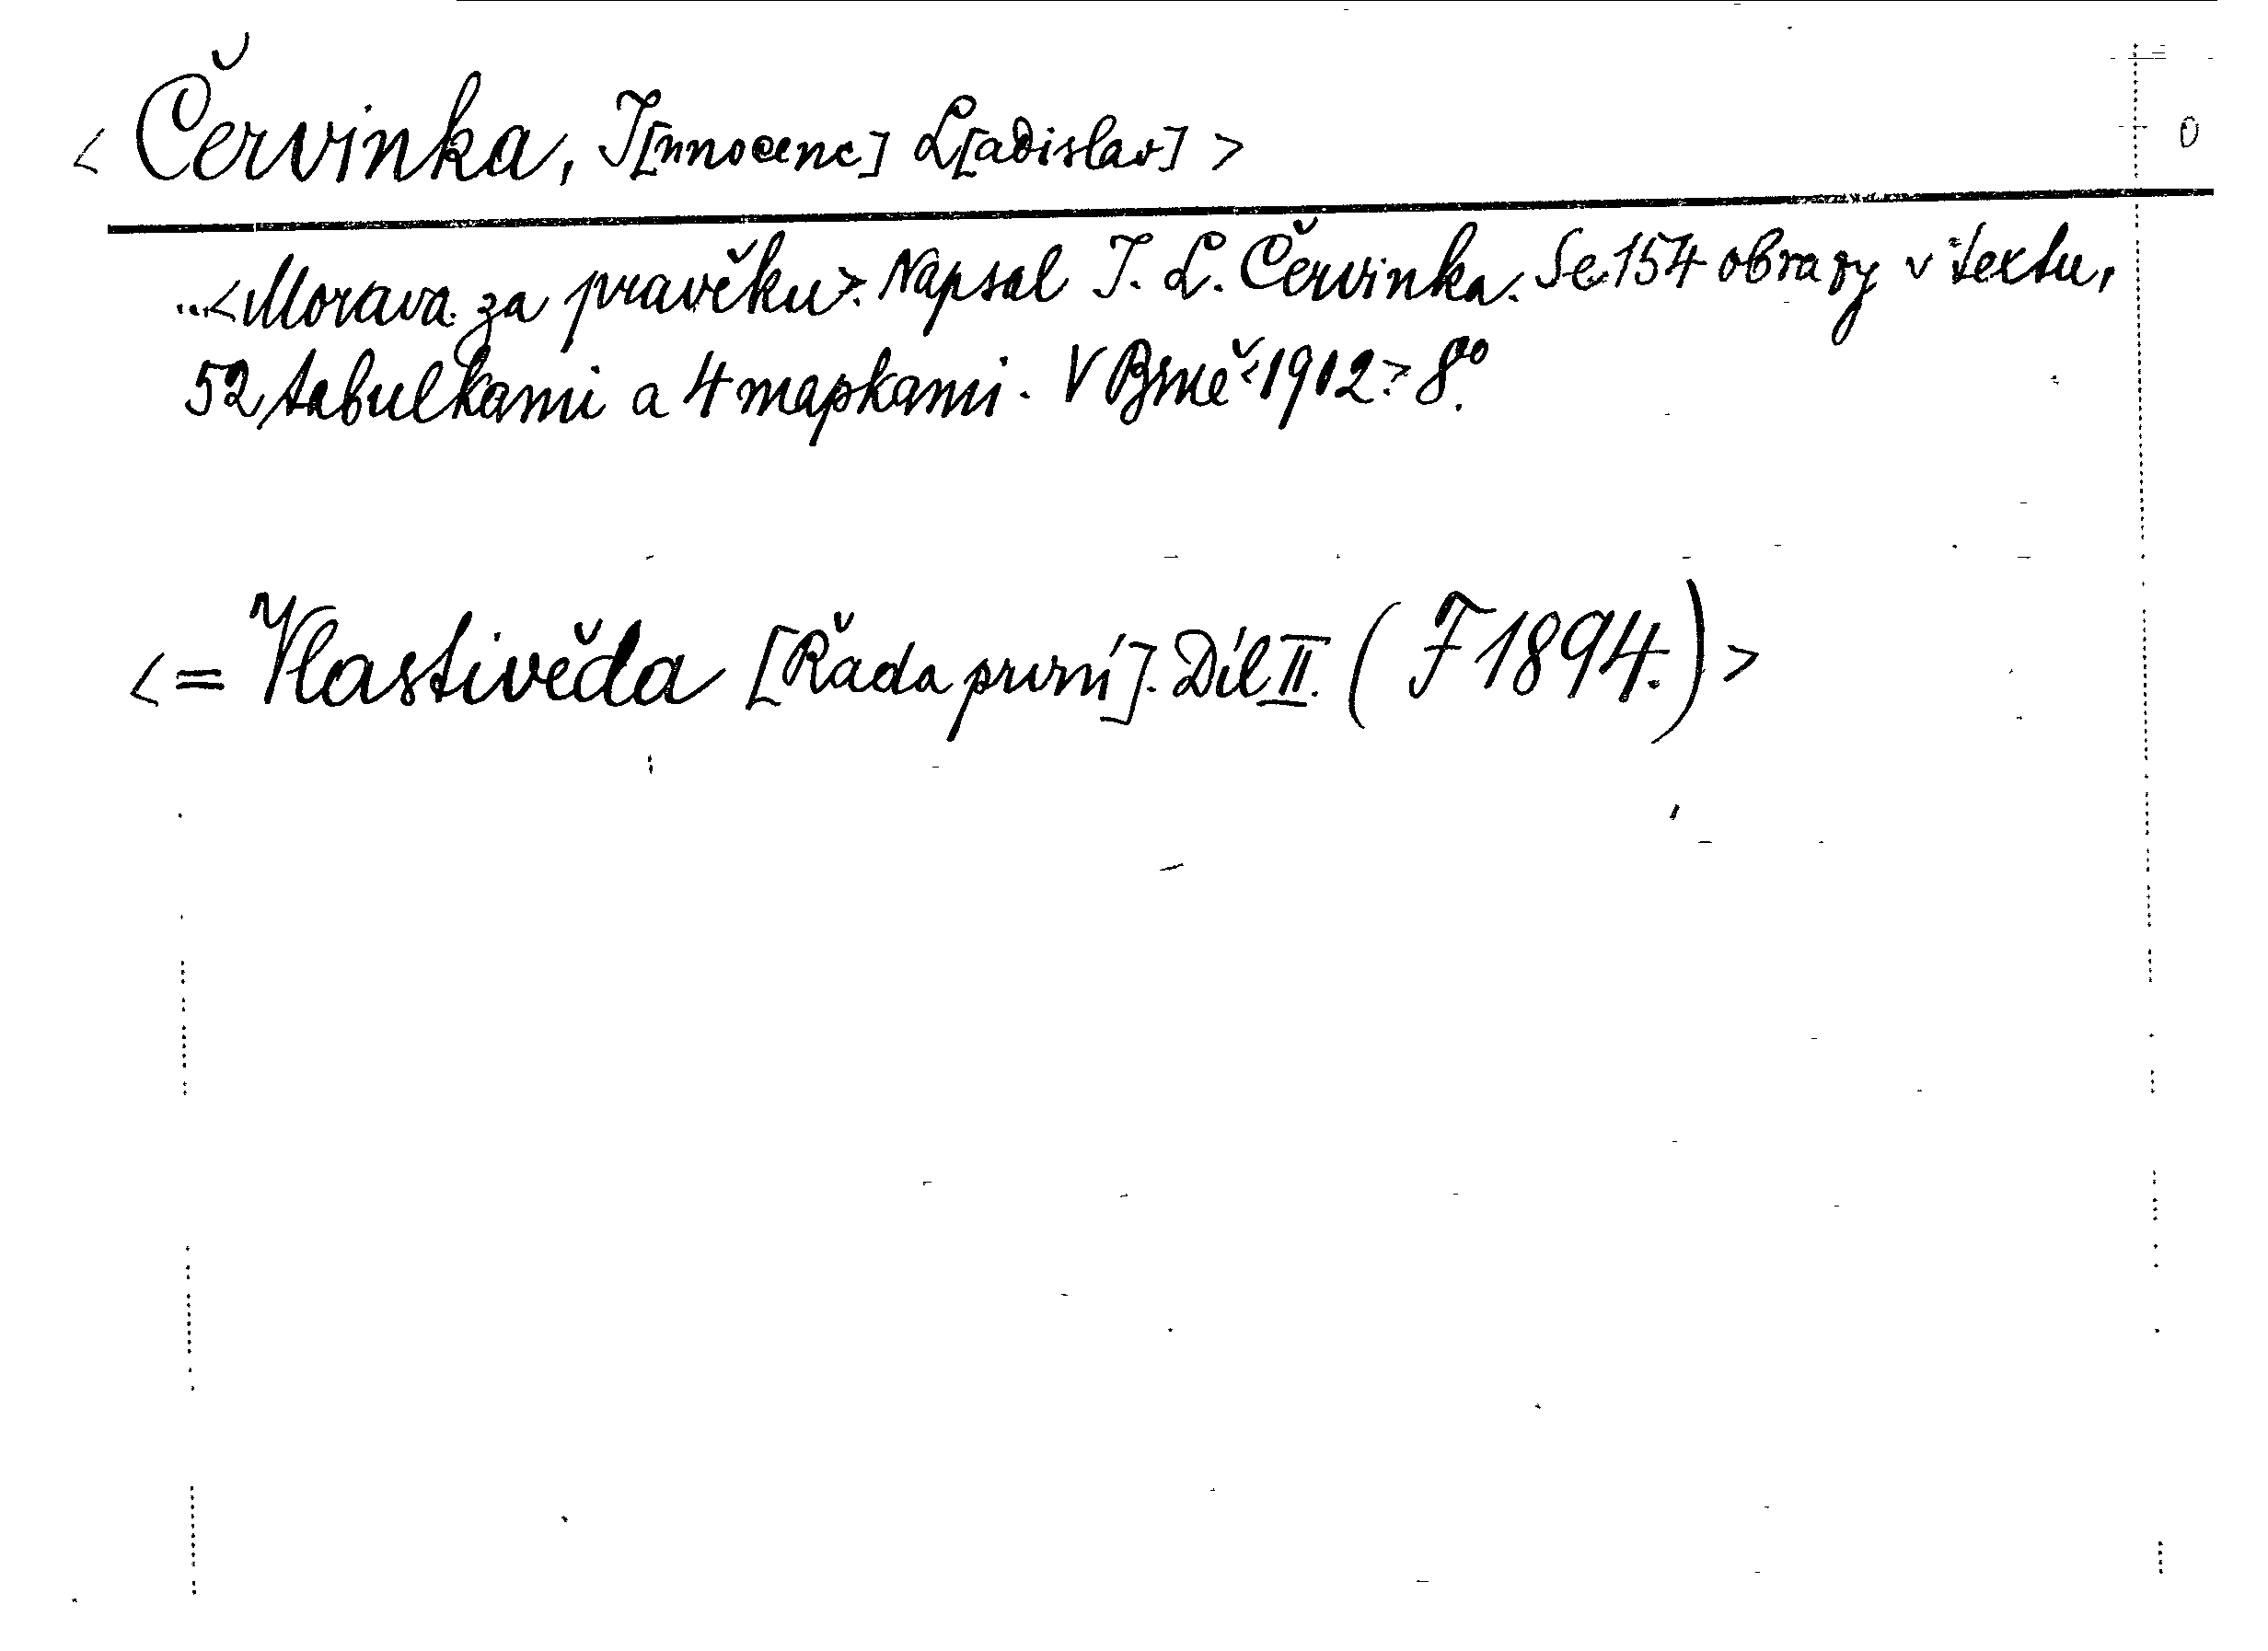 < Červinka, I[nnocenc] L[adislav] >
0
...< Morava za pravěku >. Napsal I. L. Červinka. Se 154 obrazy v textu,
52 tabulkami a 4 mapkami. V Brně < 1912 > 8°.
< = Vlastivěda [Řada první]. Díl II. (F 1894.) >